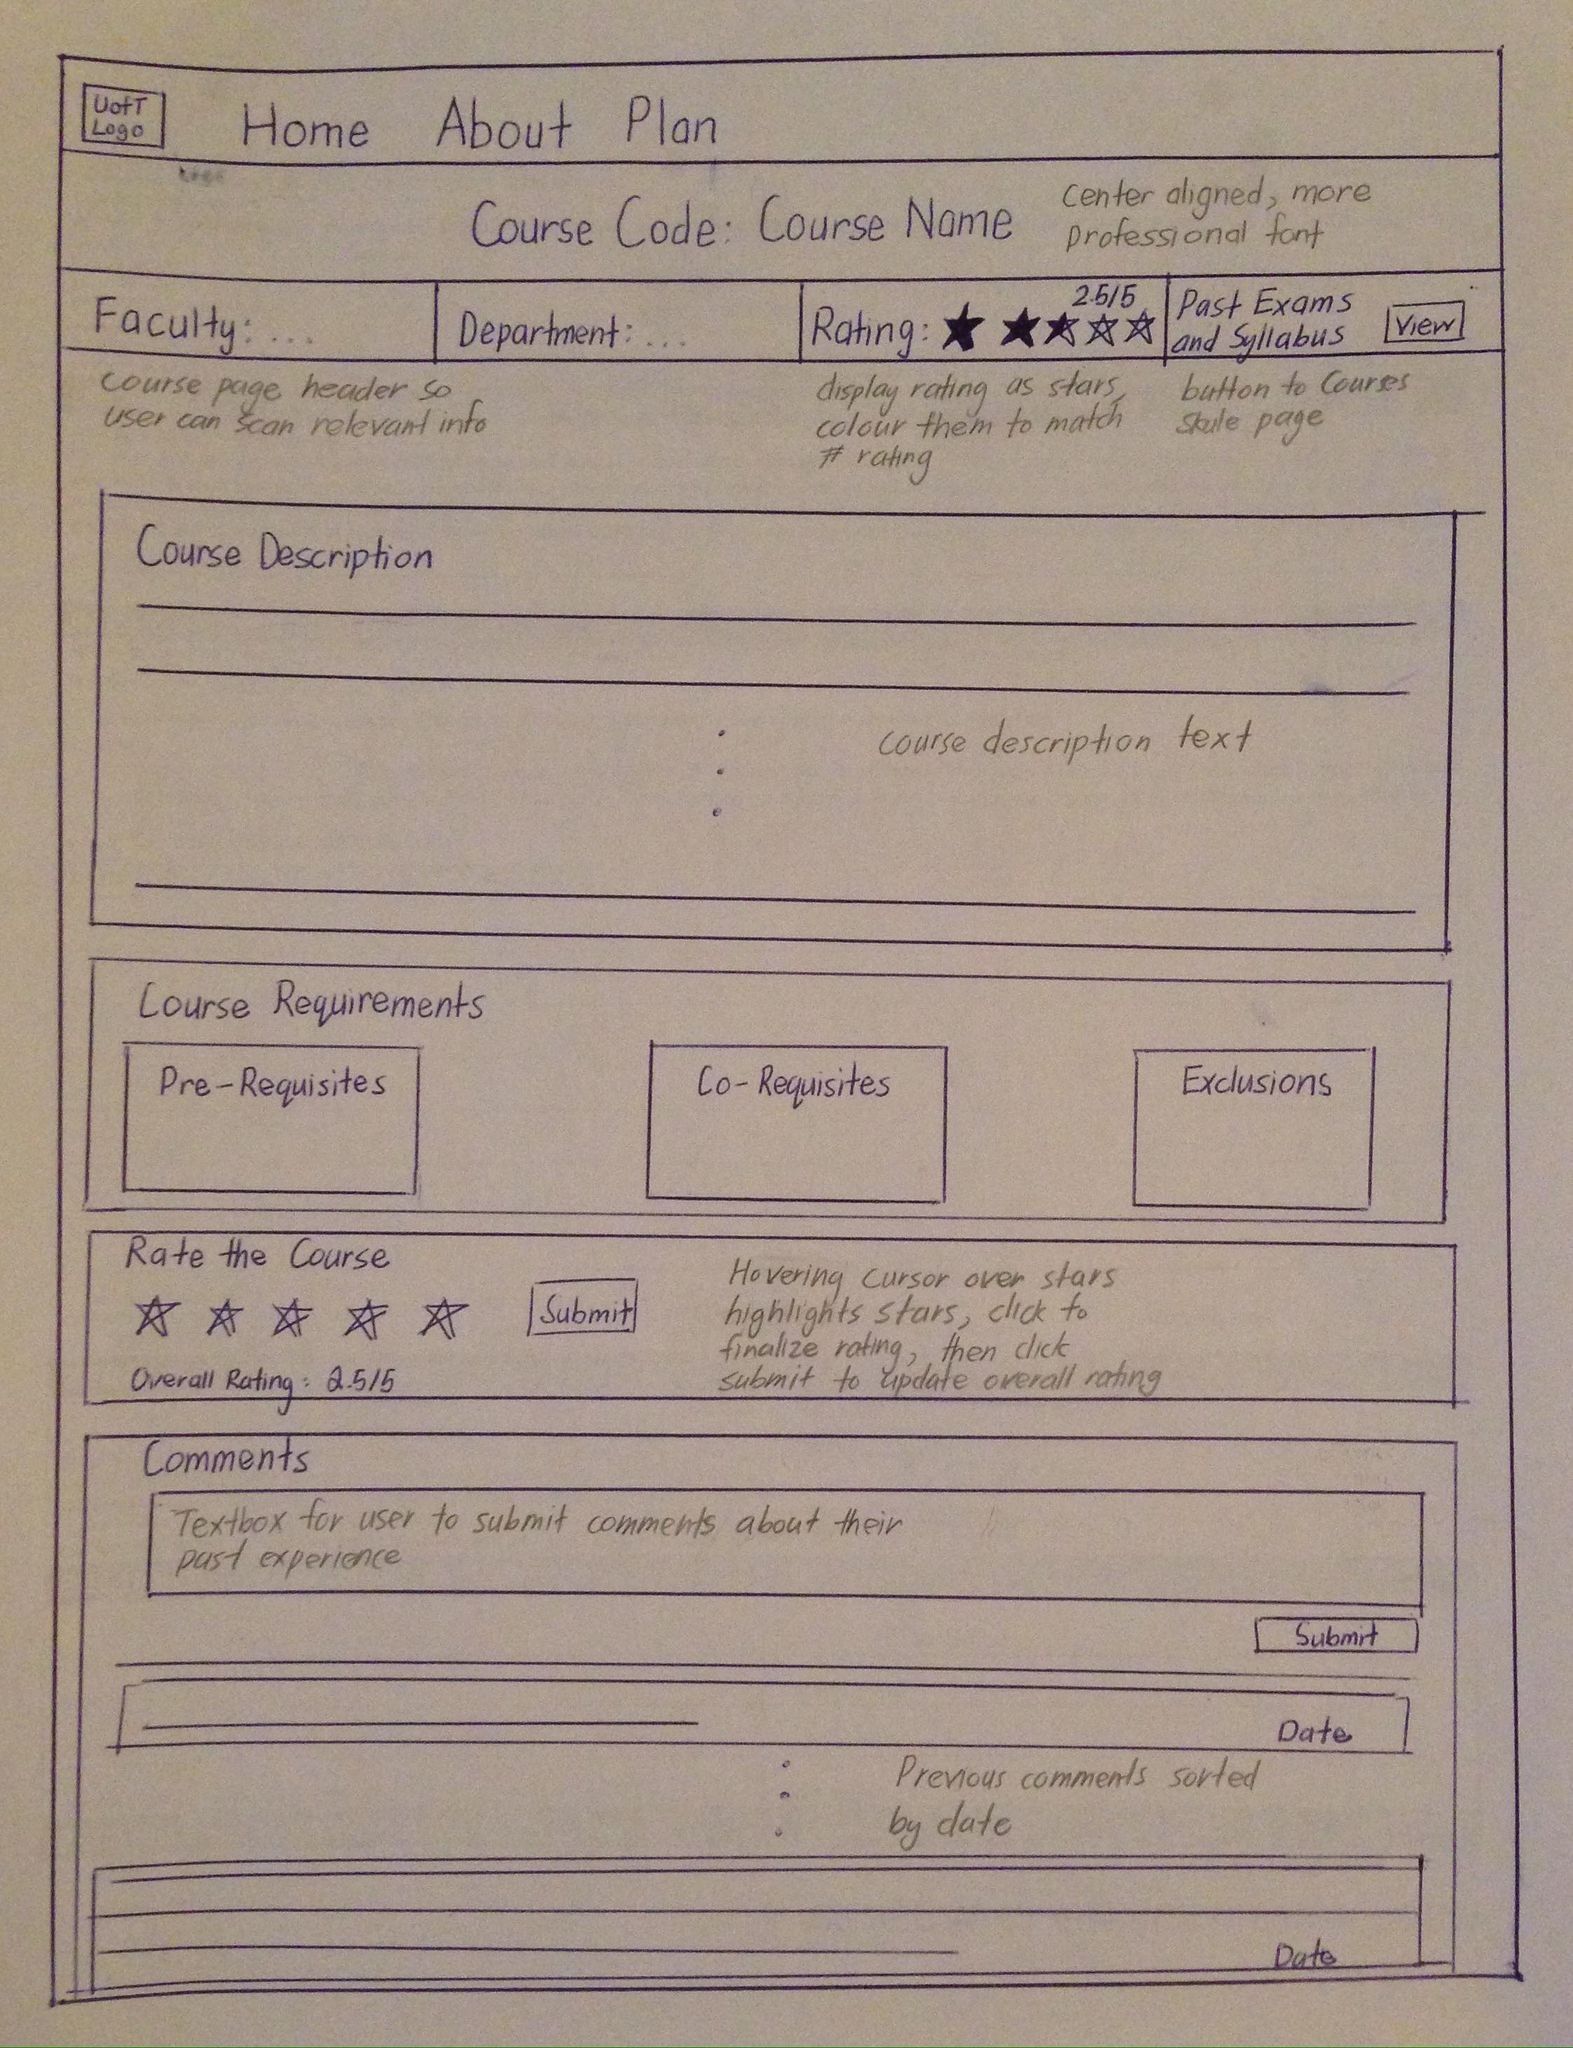 UofT
Logo
Home About Plan
Course Code: Course Name
Center aligned, more
professional font
Faculty: ...
Department: ...
Rating:
2.5/5
Past Exams
and Syllabus
View
course page header so
user can scan relevant info
display rating as stars,
colour them to match
# rating
button to Courses
Skule page
Course Description
course description text
Course Requirements
Pre-Requisites
Co-Requisites
Exclusions
Rate the Course
Submit
Overall Rating: 2.5/5
Hovering cursor over stars
highlights stars, click to
finalize rating, then click
submit to update overall rating
Comments
Textbox for user to submit comments about their
past experience
Submit
Date
Previous comments sorted
by date
Date